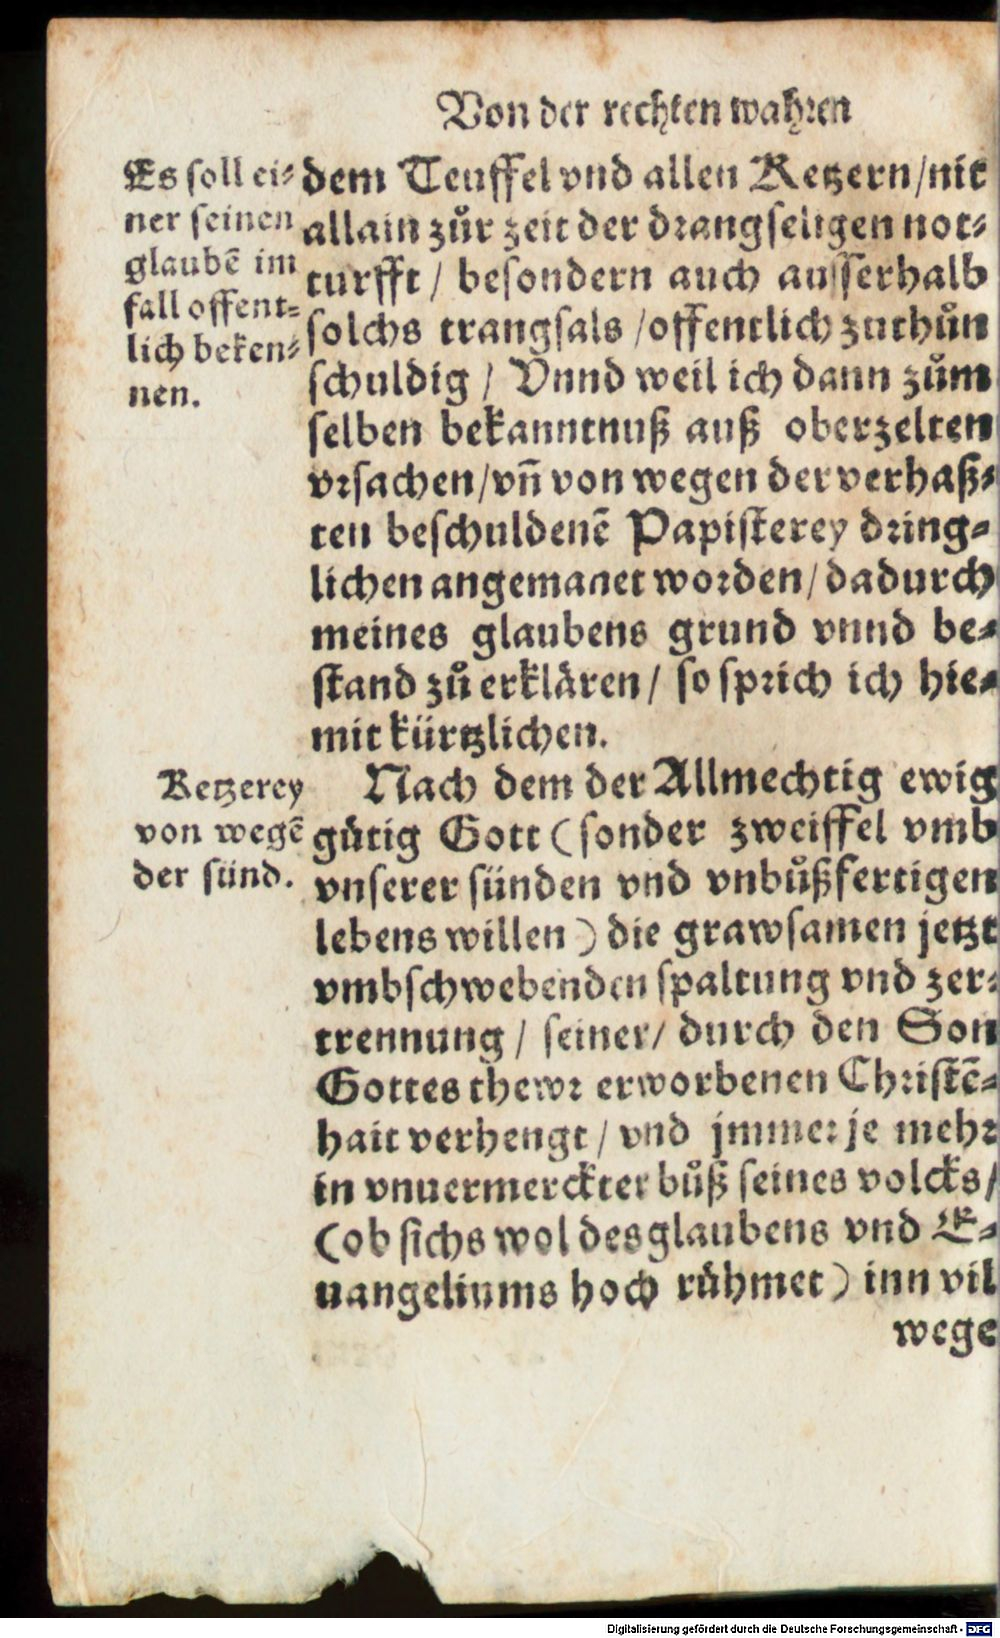 Von der rechten wahren
Es soll ei⸗
ner seinen
glaubẽ im
fall offent⸗
lich beken⸗
nen.
dem Teuffel vnd allen Ketzern/nit
allain zůr zeit der drangseligen not⸗
turfft / besondern auch ausserhalb
solchs trangsals /offentlich zuthůn
schuldig / Vnnd weil ich dann zům
selben bekanntnuß auß oberzelten
vrsachen/vñ von wegen der verhaß⸗
ten beschuldenẽ Papisterey dring⸗
lichen angemanet worden/dadurch
meines glaubens grund vnnd be⸗
stand zů erklären/ so sprich ich hie⸗
mit kürtzlichen.
Ketzerey
von wegẽ
der sünd.
Nach dem der Allmechtig ewig
gütig Gott (sonder zweiffel vmb
vnserer sünden vnd vnbůßfertigen
lebens willen) die grawsamen jetzt
vmbschwebenden spaltung vnd zer⸗
trennung/ seiner/ durch den Son
Gottes thewr erworbenen Christẽ⸗
hait verhengt/ vnd jmmer je mehr
in vnuermerckter bůß seines volcks/
(ob sichs wol des glaubens vnd E⸗
uangeliums hoch rühmet) inn vil
wege
Digitalisierung gefördert durch die Deutsche Forschungsgemeinschaft - DFG